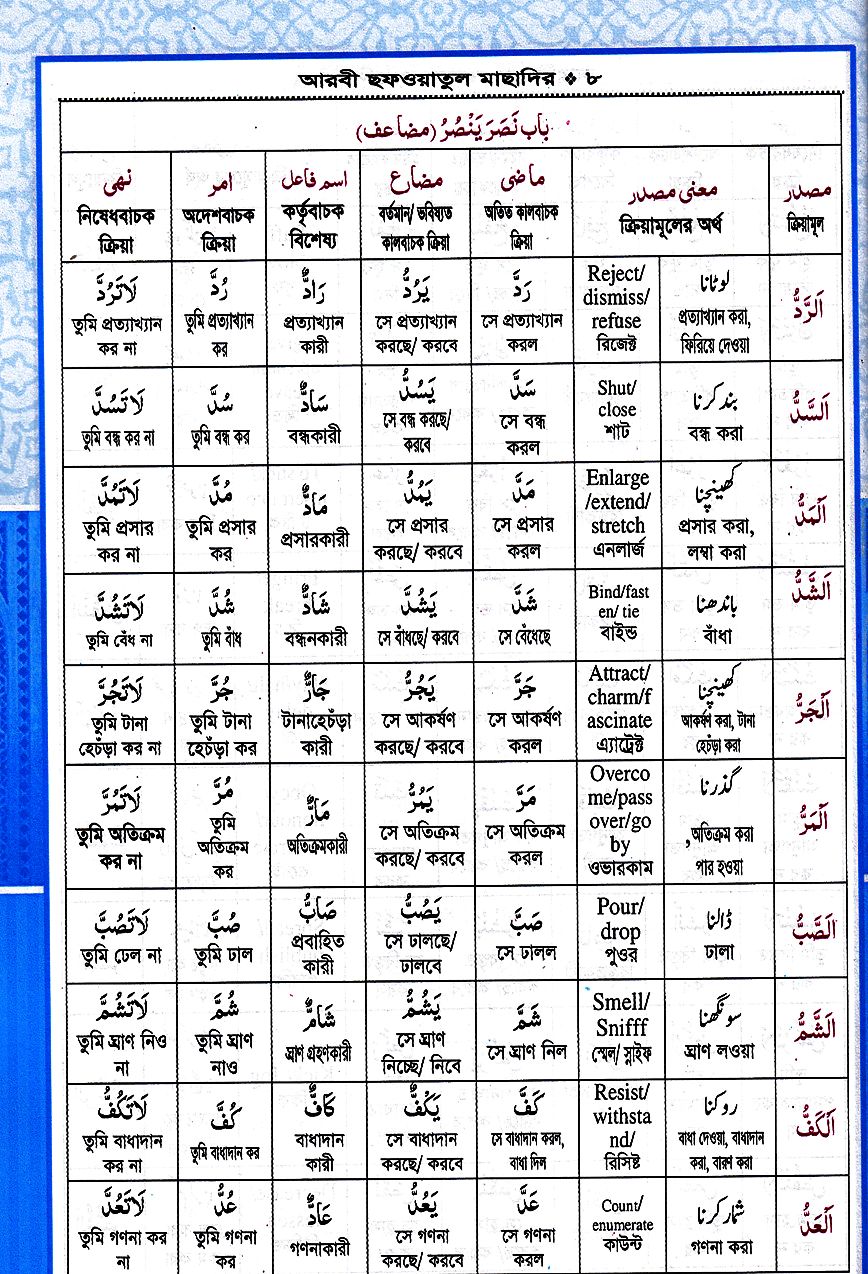 আরবী ছফওয়াতুল মাছাদির ❖ ৮
باب نَصَرَ يَنْصُرُ (مضاعف)
مصدر
ক্রিয়ামূল
معنی مصدر
ক্রিয়ামূলের অর্থ
ماضی
অতিত কালবাচক
ক্রিয়া
مضارع
বর্তমান/ ভবিষ্যত
কালবাচক ক্রিয়া
اسم فاعل
কর্তৃবাচক
বিশেষ্য
امر
অদেশবাচক
ক্রিয়া
نهی
নিষেধবাচক
ক্রিয়া
اَلرَّدُّ
لوٹانا
প্রত্যাখ্যান করা,
ফিরিয়ে দেওয়া
Reject/
dismiss/
refuse
রিজেক্ট
رَدَّ
সে প্রত্যাখ্যান
করল
يَرُدُّ
সে প্রত্যাখ্যান
করছে/ করবে
رَادٌّ
প্রত্যাখ্যান
কারী
رُدَّ
তুমি প্রত্যাখ্যান
কর
لَاتَرُدَّ
তুমি প্রত্যাখ্যান
কর না
اَلسَّدُّ
بند کرنا
বন্ধ করা
Shut/
close
শাট
سَدَّ
সে বন্ধ
করল
يَسُدُّ
সে বন্ধ করছে/
করবে
سَادٌّ
বন্ধকারী
سُدَّ
তুমি বন্ধ কর
لَاتَسُدَّ
তুমি বন্ধ কর না
اَلْمَدُّ
کھینچنا
প্রসার করা,
লম্বা করা
Enlarge
/extend/
stretch
এনলার্জ
مَدَّ
সে প্রসার
করল
يَمُدُّ
সে প্রসার
করছে/ করবে
مَادٌّ
প্রসারকারী
مُدَّ
তুমি প্রসার
কর
لَاتَمُدَّ
তুমি প্রসার
কর না
اَلشَّدُّ
باندھنا
বাঁধা
Bind/fast
en/ tie
বাইন্ড
شَدَّ
সে বেঁধেছে
يَشُدُّ
সে বাঁধছে/ করবে
شَادٌّ
বন্ধনকারী
شُدَّ
তুমি বাঁধ
لَاتَشُدَّ
তুমি বেঁধ না
اَلْجَرُّ
کھینچنا
আকর্ষণ করা, টানা
হেচঁড়া করা
Attract/
charm/f
ascinate
এ্যাট্রেক্ট
جَرَّ
সে আকর্ষণ
করল
يَجُرُّ
সে আকর্ষণ
করছে/ করবে
جَارٌّ
টানাহেচঁড়া
কারী
جُرَّ
তুমি টানা
হেচঁড়া কর
لَاتَجُرَّ
তুমি টানা
হেচঁড়া কর না
اَلْمَرُّ
گذرنا
,অতিক্রম করা
পার হওয়া
Overco
me/pass
over/go
by
ওভারকাম
مَرَّ
সে অতিক্রম
করল
يَمُرُّ
সে অতিক্রম
করছে/ করবে
مَارٌّ
অতিক্রমকারী
مُرَّ
তুমি
অতিক্রম
কর
لَاتَمُرَّ
তুমি অতিক্রম
কর না
اَلصَّبُّ
ڈالنا
ঢালা
Pour/
drop
পুওর
صَبَّ
সে ঢালল
يَصُبُّ
সে ঢালছে/
ঢালবে
صَابٌّ
প্রবাহিত
কারী
صُبَّ
তুমি ঢাল
لَاتَصُبَّ
তুমি ঢেল না
اَلشَّمُّ
سونگھنا
ঘ্রাণ লওয়া
Smell/
Snifff
স্মেল/ স্নাইফ
شَمَّ
সে ঘ্রাণ নিল
يَشُمُّ
সে ঘ্রাণ
নিচ্ছে/ নিবে
شَامٌّ
ঘ্রাণ গ্রহণকারী
شُمَّ
তুমি ঘ্রাণ
নাও
لَاتَشُمَّ
তুমি ঘ্রাণ নিও
না
اَلْكَفُّ
روکنا
বাধা দেওয়া, বাধাদান
করা, বারণ করা
Resist/
withsta
nd/
রিসিষ্ট
كَفَّ
সে বাধাদান করল,
বাধা দিল
يَكُفُّ
সে বাধাদান
করছে/ করবে
كَافٌّ
বাধাদান
কারী
كُفَّ
তুমি বাধাদান কর
لَاتَكُفَّ
তুমি বাধাদান
কর না
اَلْعَدُّ
شمار کرنا
গণনা করা
Count/
enumerate
কাউন্ট
عَدَّ
সে গণনা
করল
يَعُدُّ
সে গণনা
করছে/ করবে
عَادٌّ
গণনাকারী
عُدَّ
তুমি গণনা
কর
لَاتَعُدَّ
তুমি গণনা কর
না